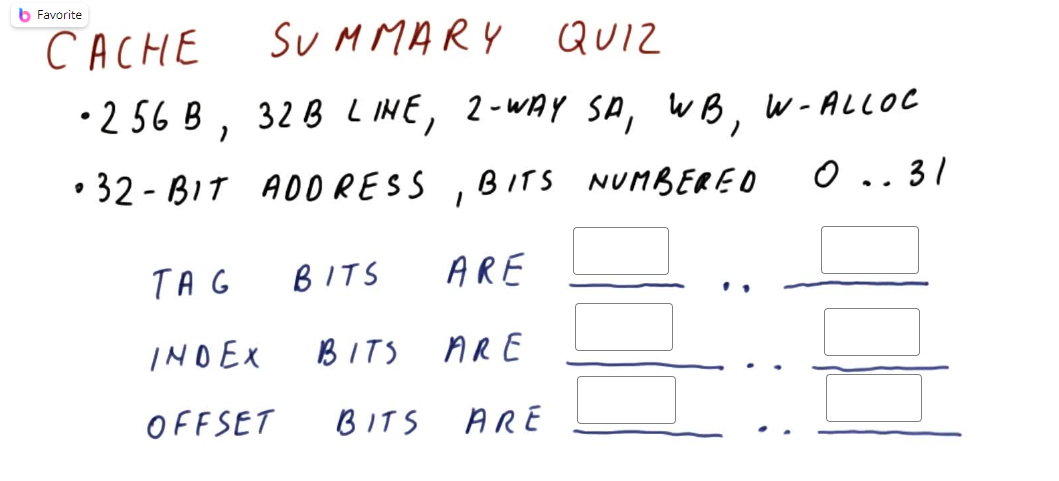 Favorite
CACHE SUMMARY QUIZ
• 256 B, 32 B LINE, 2-WAY SA, WB, W-ALLOC
• 32-BIT ADDRESS, BITS NUMBERED 0 .. 31
TAG BITS ARE ..
INDEX BITS ARE ..
OFFSET BITS ARE ..